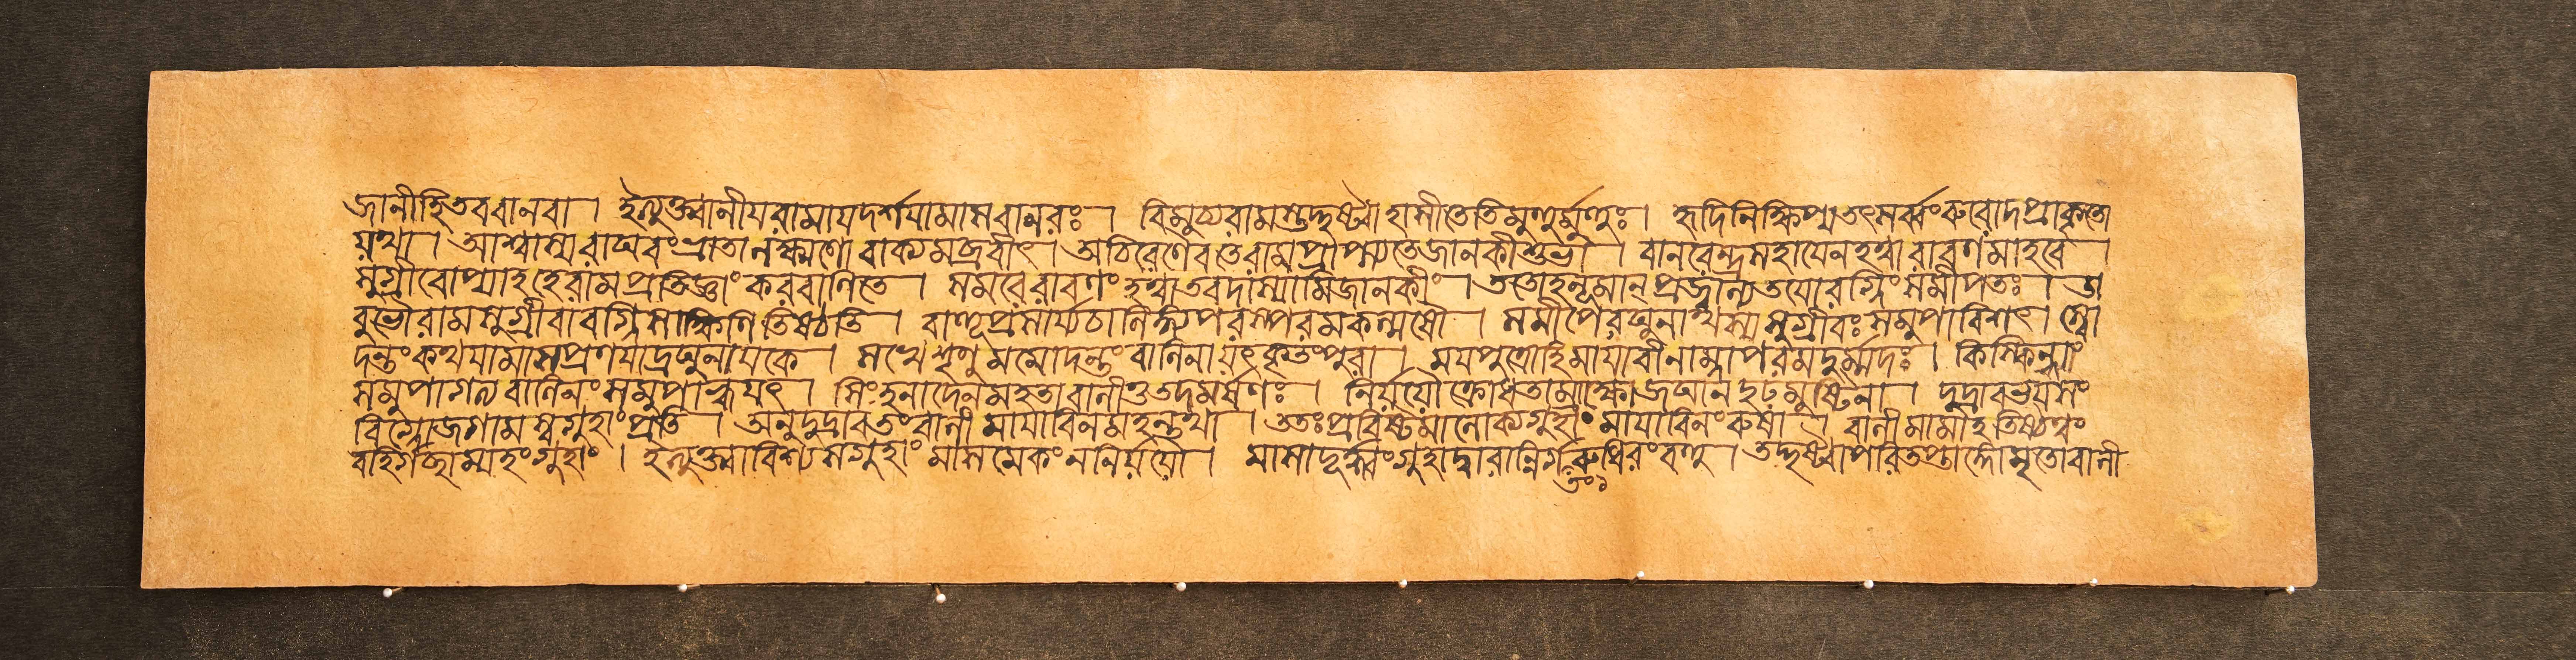 জানীহিতববানবা। ইত্যুক্ত্বানীযরামাযদর্শযামাসবানরঃ। বিমুচ্যরামস্তদ্দৃষ্ট্বাহাসীতেতিমুহুর্মুহুঃ। হৃদিনিক্ষিপ্যতৎসর্ব্বংরুরোদপ্রাকৃতো
যথা। আশ্বাস্যরাঘবংভ্রাতালক্ষ্মণোবাক্যমব্রবীৎ। অচিরেণৈবতেরামপ্রাপ্স্যতেজানকীশুভা। বানরেন্দ্রসহাযেনহত্বারাবণমাহবে।
সুগ্রীবোপ্যাহহেরামপ্রতিজ্ঞাংকরবাণিতে। সমরেরাবণংহত্বাতবদাস্যামিজানকীং। ততোহনূমান্প্রজ্বাল্যতযোরগ্নিংসমীপতঃ। তা
বুভৌরামসুগ্রীবাবগ্নিসাক্ষিণিতিষ্ঠতি। বাহূপ্রসার্য্যচালিঙ্গ্যপরস্পরমকল্মষৌ। সমীপেরঘুনাথস্যসুগ্রীবঃসমুপাবিশৎ। স্বো
দন্তংকথযামাসপ্রণযাদ্রঘুনাযকে। সখেশৃণুমমোদন্তংবালিনাযৎকৃতংপুরা। মযপুত্রোহিমাযাবীনাম্নাপরমদুর্ম্মদঃ। কিষ্কিন্ধাং
সমুপাগত্যবালিনংসমুপাহ্বযৎ। সিংহনাদেনমহতাবালীতুতদমর্ষণঃ। নির্য্যযৌক্রোধতাম্রাক্ষোজঘানদৃঢমুষ্টিনা। দুদ্রাবভযসং
বিগ্নোজগামস্বগুহাংপ্রতি। অনুদুদ্রাবতংবালীমাযাবিনমহন্তথা। ততঃপ্রবিষ্টমালোক্যগুহাংমাযাবিনংরুষা। বালীমামাহতিষ্ঠত্বং
বহির্গচ্ছাম্যহংগুহাং। ইত্যুক্ত্বাবিশ্যসগুহাংমাসমেকংননির্য্যযৌ। মাসাদূর্দ্ধ্বংগুহাদ্বারান্নির্গতংরুধিরংবহু। তদ্দৃষ্ট্বাপরিতপ্তাঙ্গোমৃতোবালী